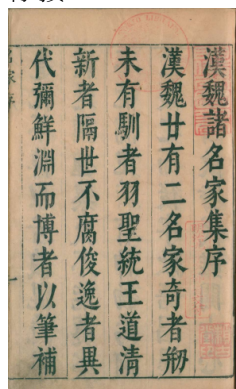 漢魏諸名家集序
漢魏廿有二名家奇者刱
未有馴者羽聖統王道清
新者隔世不腐俊逸者異
代彌鮮淵而博者以筆補